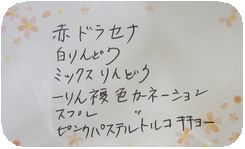 赤 ドラセナ
白りんどう
ミックス りんどう
一りん 複色 カーネーション
スプレ 〃
ピンクパステルトルコキキョー